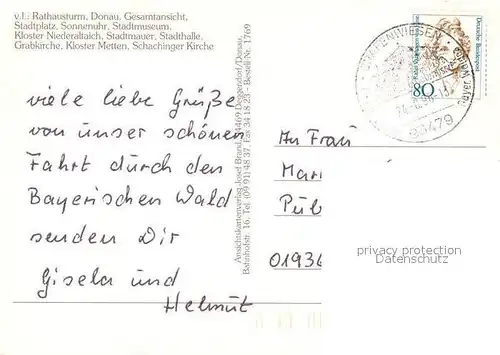 v.l.: Rathausturm, Donau, Gesamtansicht,
Stadtplatz, Sonnenuhr, Stadtmuseum,
Kloster Niederaltaich, Stadtmauer, Stadthalle,
Grabkirche, Kloster Metten, Schachinger Kirche
viele liebe Grüße
von unser schönen
Fahrt durch den
Bayerischen Wald
senden Dir
Gisela und
Helmut
Ansichtskartenverlag Josef Brand, 8469 Deggendorf/Donau,
Bahnhofstr. 16, Tel. (09 91) 48 37, Fax 34 18 23 - Bestell-Nr. 1769
GRAFENWIESEN
93479
Deutsche Bundespost
80
An Frau
Mari
Pul
01936
privacy protection
Datenschutz